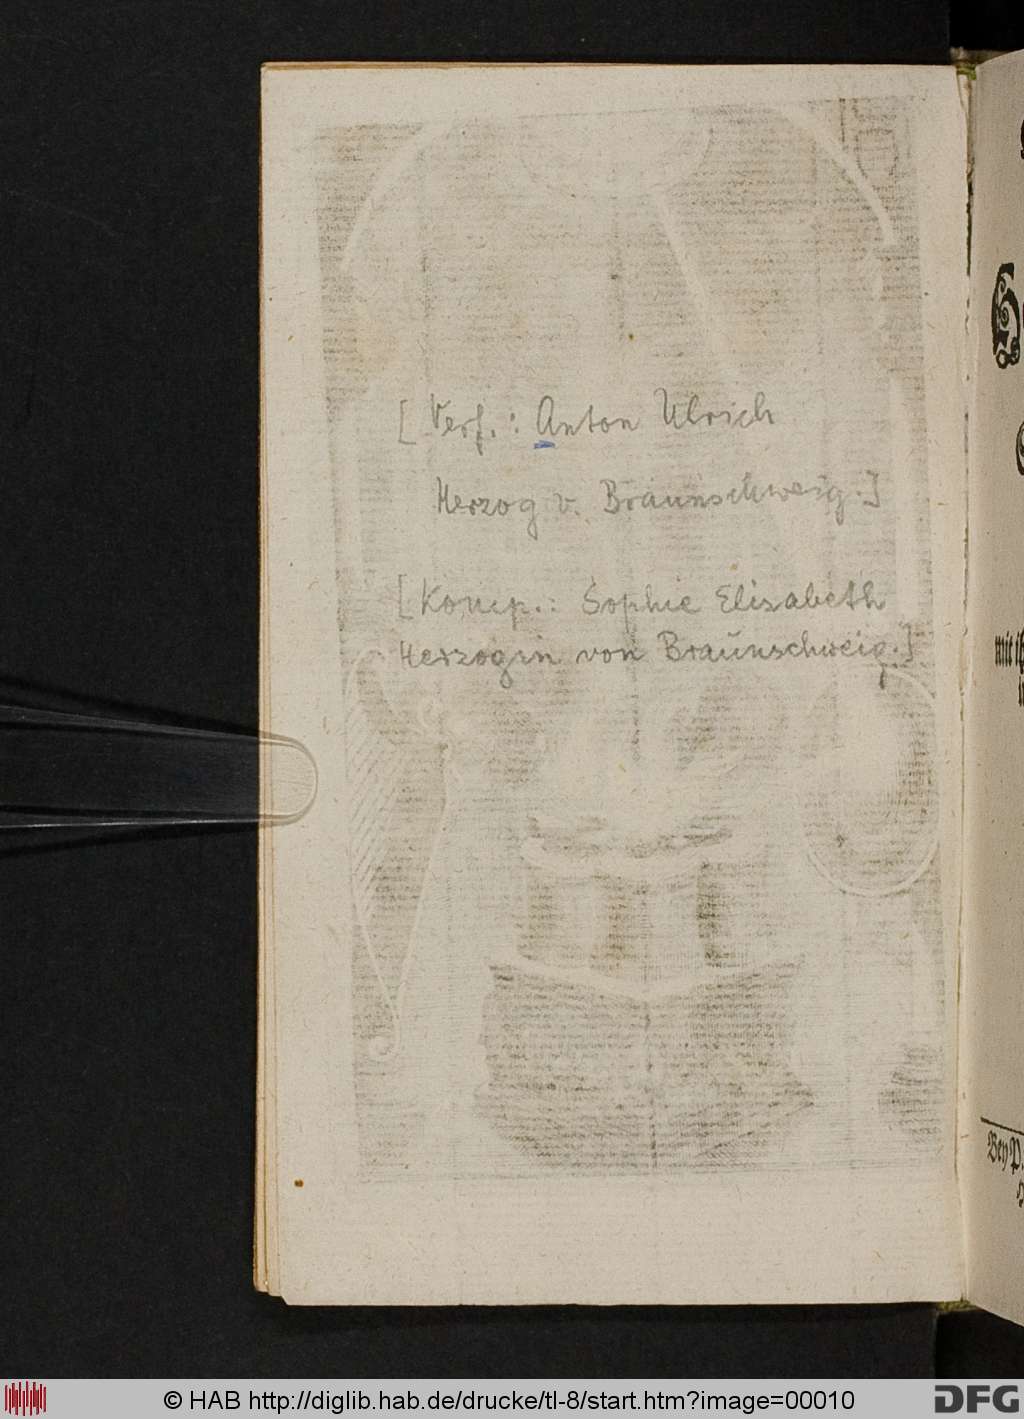 [ Verf.: Anton Ulrich
Herzog v. Braunschweig.]
[Komp.: Sophie Elisabeth
Herzogin von Braunschweig.]
mit ih
Bey P.
© HAB http://diglib.hab.de/drucke/tl-8/start.htm?image=00010
DFG